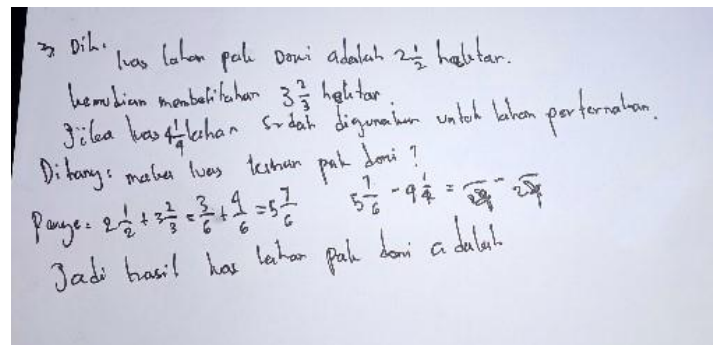 3, Dik. luas lahan pak Doni adalah 2 1/2 hektar.
kemudian membeli lahan 3 2/3 hektar
Jika luas 4 1/4 lahan sudah digunakan untuk lahan perternakan.
Ditanya: maka luas lahan pak doni ?
2 1/2 + 3 2/3 = 3/6 + 4/6 = 5 7/6 5 7/6 - 4 1/4 =
Jadi hasil luas lahan pak doni adalah